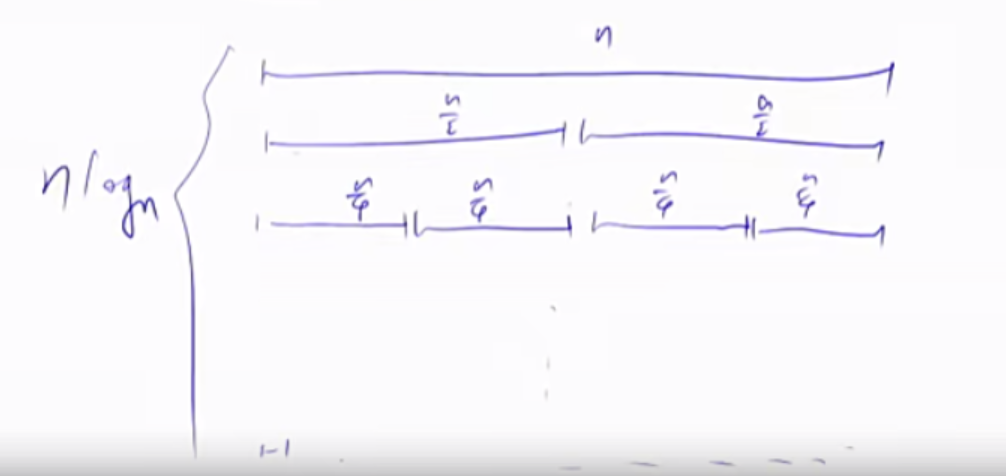 n
n/2 n/2
n/4 n/4 n/4 n/4
n log n